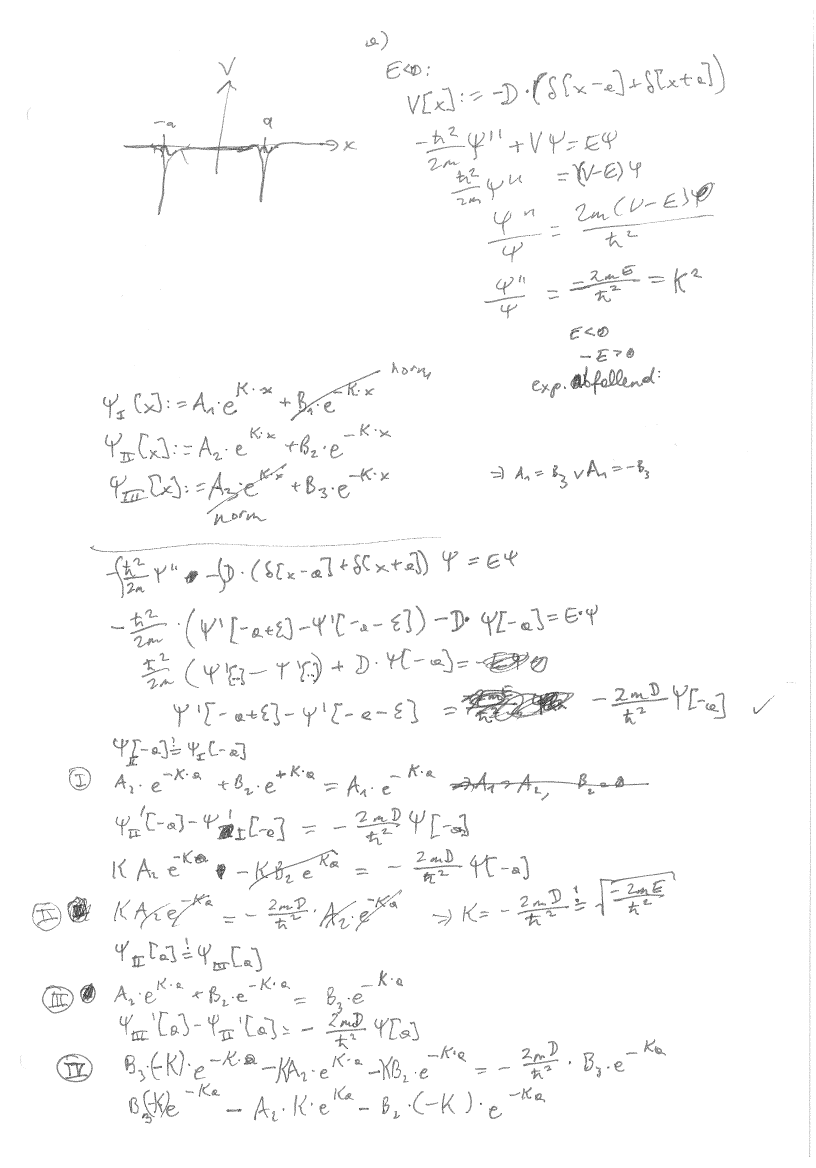 a)
V
-a
a
x
E<0:
V[x]:=-D·(δ[x-a]+δ[x+a])
-ℏ²/2m Ψ'' + VΨ=EΨ
ℏ²/2m Ψ'' =(V-E)Ψ
Ψ''/Ψ = 2m(V-E)/ℏ²
Ψ''/Ψ = -2mE/ℏ² = K²
E<0
-E>0
exp. abfallend:
norm
Ψ_I[x]:=A₁·e^(K·x) +B₁·e^(-K·x)
Ψ_II[x]:=A₂·e^(K·x) +B₂·e^(-K·x)
Ψ_III[x]:=A₃·e^(K·x) +B₃·e^(-K·x)
norm
⇒ A₁=B₃ ∨ A₁=-B₃
-ℏ²/2m Ψ'' - D·(δ[x-a]+δ[x+a]) Ψ = EΨ
-ℏ²/2m ·(Ψ'[-a+ε]-Ψ'[-a-ε])-D·Ψ[-a]=E·Ψ
ℏ²/2m (Ψ'[..]-Ψ'[..])+D·Ψ[-a]=
Ψ'[-a+ε]-Ψ'[-a-ε] = -2mD/ℏ² Ψ[-a] ✓
Ψ_II[-a]≟Ψ_I[-a]
I A₂·e^(-K·a) +B₂·e^(+K·a) =A₁·e^(-K·a) ⇒A₁=A₂, B₂=0
Ψ_II'[-a]-Ψ_I'[-a] = -2mD/ℏ² Ψ[-a]
KA₂e^(-Ka) -KB₂e^(Ka) = -2mD/ℏ² Ψ[-a]
II KA₂e^(-Ka) = -2mD/ℏ² ·A₂·e^(-Ka) ⇒K=-2mD/ℏ² ≟ √(-2mE/ℏ²)
Ψ_II[a]≟Ψ_III[a]
III A₂·e^(K·a) +B₂·e^(-K·a) = B₃·e^(-K·a)
Ψ_III'[a]-Ψ_II'[a]=-2mD/ℏ² Ψ[a]
IV B₃·(-K)·e^(-K·a) -KA₂·e^(K·a) -KB₂·e^(-K·a) =-2mD/ℏ² ·B₃·e^(-Ka)
B₃(-K)e^(-Ka) -A₂·K·e^(Ka) -B₂·(-K)·e^(-Ka)